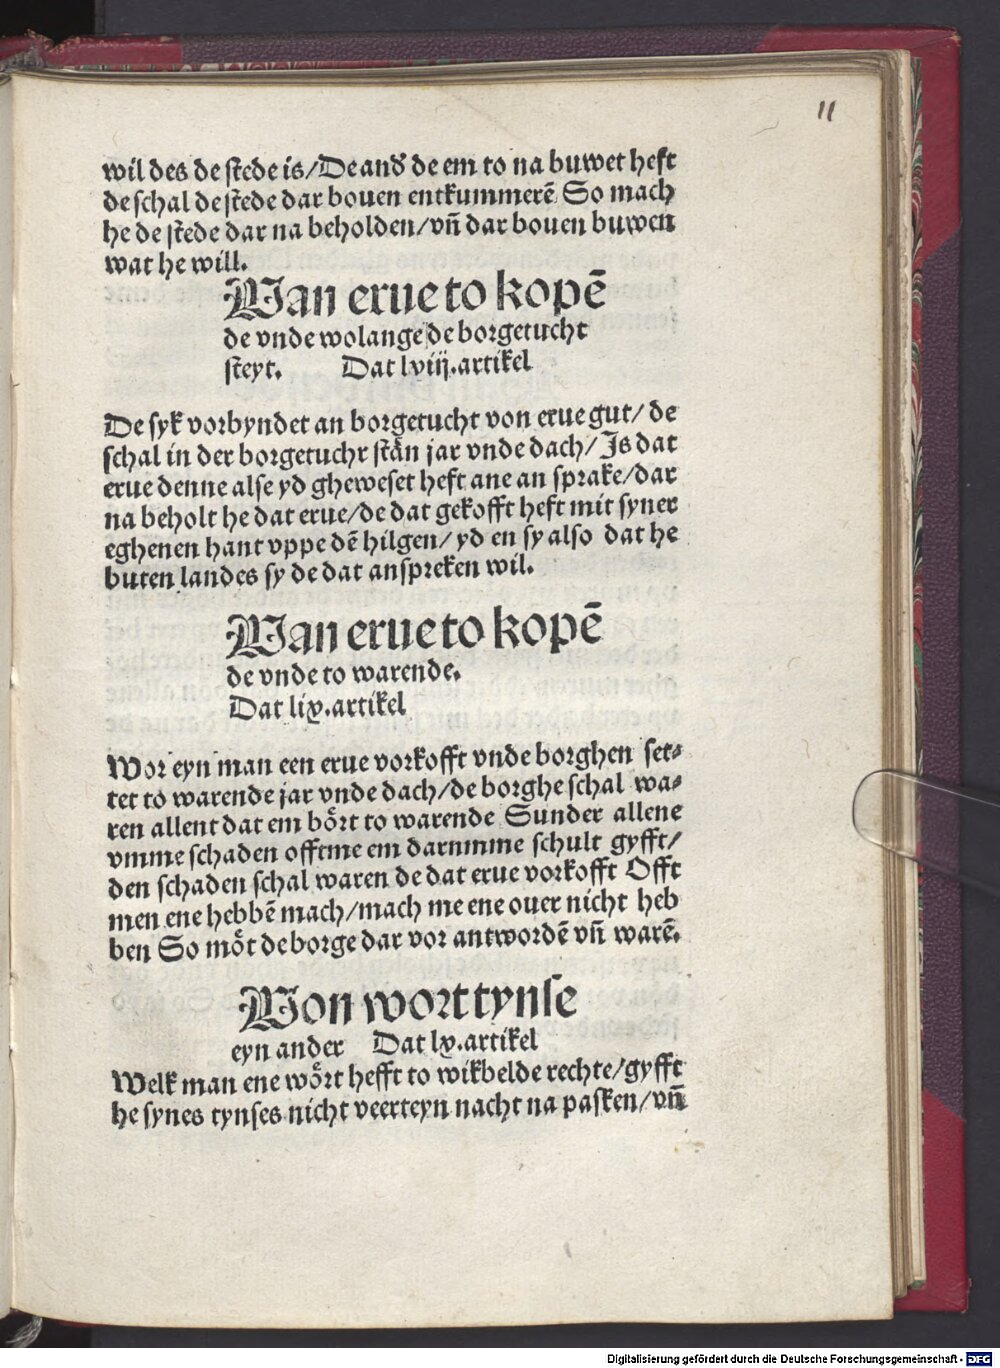 11
wil des de stede is/De and' de em to na buwet heft
de schal de stede dar bouen entkummerē So mach
he de stede dar na beholden/vn̄ dar bouen buwen
wat he will.
Van erue to kopē
de vnde wolange de borgetucht
steyt. Dat lviij.artikel
De syk vorbyndet an borgetucht von erue gut/ de
schal in der borgetucht stån jar vnde dach/ Js dat
erue denne alse yd gheweset heft ane an sprake/dar
na beholt he dat erue/de dat gekofft heft mit syner
eghenen hant vppe dē hilgen/ yd en sy also dat he
buten landes sy de dat anspreken wil.
Van erue to kopē
de vnde to warende.
Dat lix.artikel
Wor eyn man een erue vorkofft vnde borghen set⸗
tet to warende jar vnde dach/de borghe schal wa⸗
ren allent dat em bört to warende Sunder allene
vmme schaden offtme em darumme schult gyfft/
den schaden schal waren de dat erue vorkofft Offt
men ene hebbē mach/mach me ene ouer nicht heb
ben So möt de borge dar vor antwordē vn̄ warē.
Von wort tynse
eyn ander Dat lx.artikel
Welk man ene wört hefft to wikbelde rechte/gyfft
he synes tynses nicht veerteyn nacht na pasken/vn̄
Digitalisierung gefördert durch die Deutsche Forschungsgemeinschaft - DFG